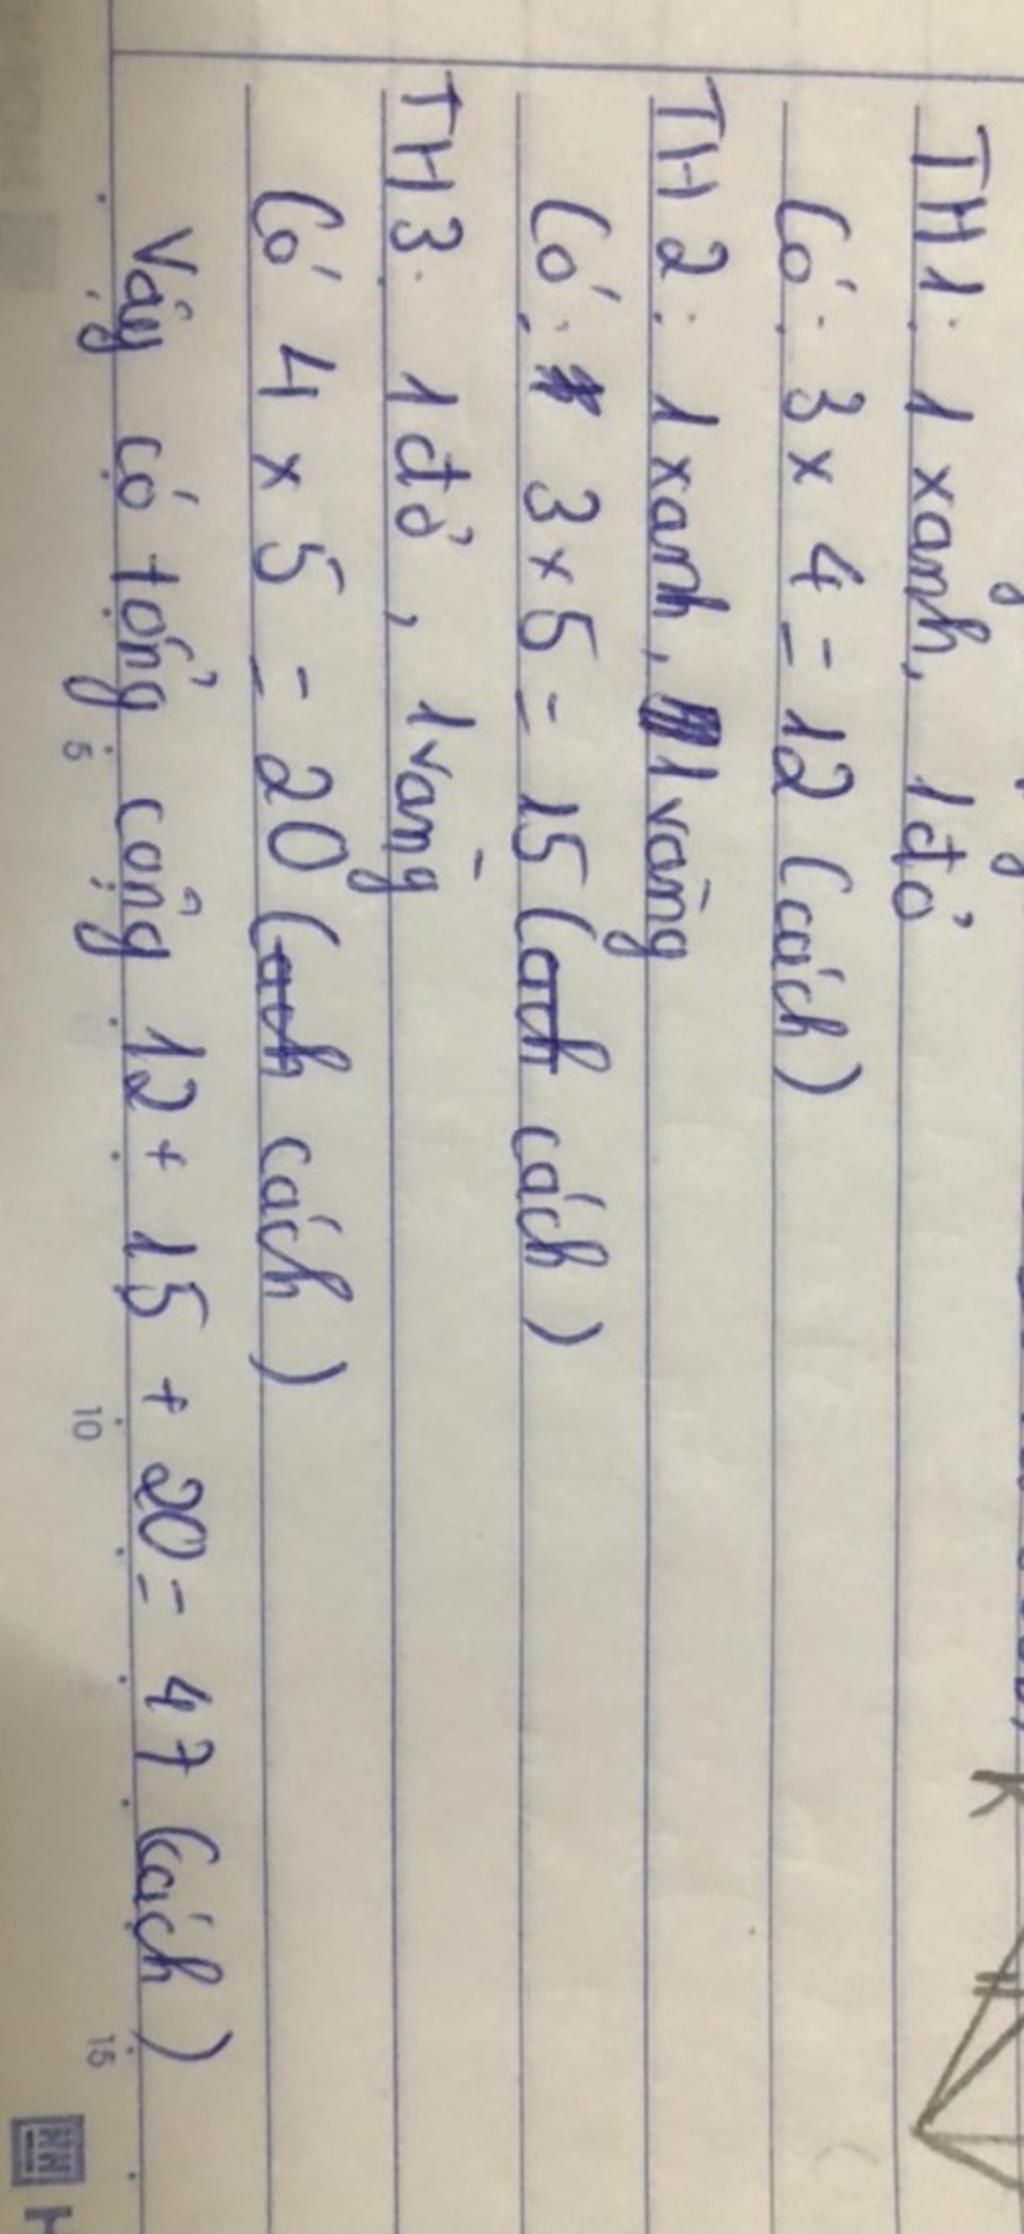 TH1: 1 xanh, 1 đỏ
Có: 3 x 4 = 12 (cách)
TH2: 1 xanh, 1 vàng
Có: 3 x 5 = 15 (cách)
TH3: 1 đỏ, 1 vàng
Có 4 x 5 = 20 (cách)
Vậy có tổng cộng 12 + 15 + 20 = 47 (cách)
5 10 15
K